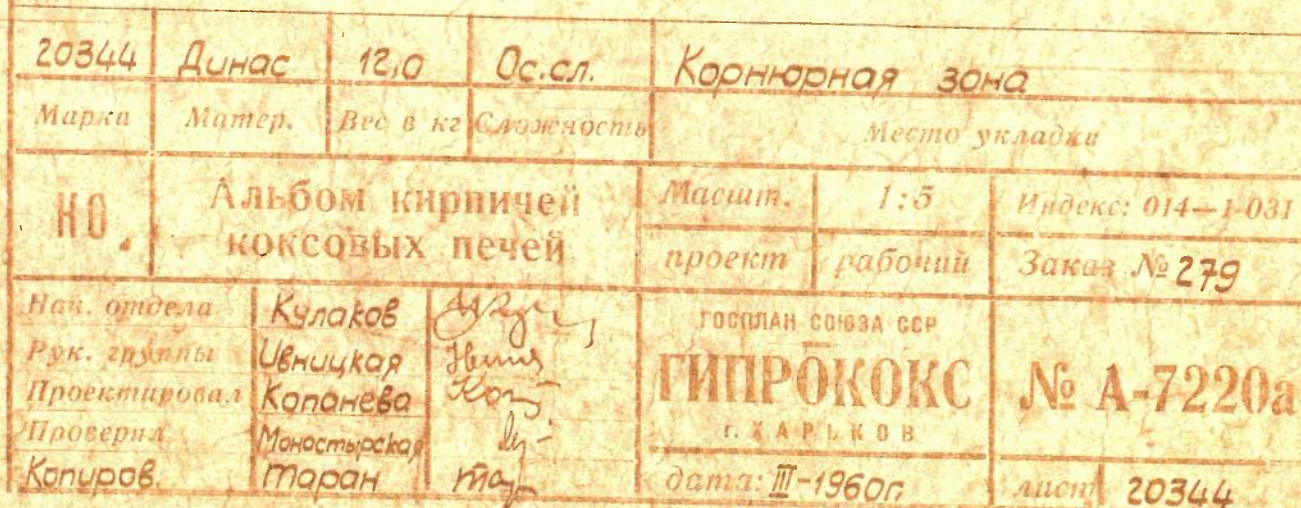 20344 Динас 12,0 Ос.сл. Корнюрная зона
Марка Матер. Вес в кг Сложность Место укладки
КО. Альбом кирпичей коксовых печей
Масшт. 1:5 Индекс: 014—1-031
проект рабочий Заказ № 279
Нач. отдела Кулаков
Рук. группы Ивницкая
Проектировал Копанева
Проверил Монастырская
Копиров. Таран
ГОСПЛАН СОЮЗА ССР
ГИПРОКОКС
г. ХАРЬКОВ
№ А-7220а
дата: III-1960г лист 20344